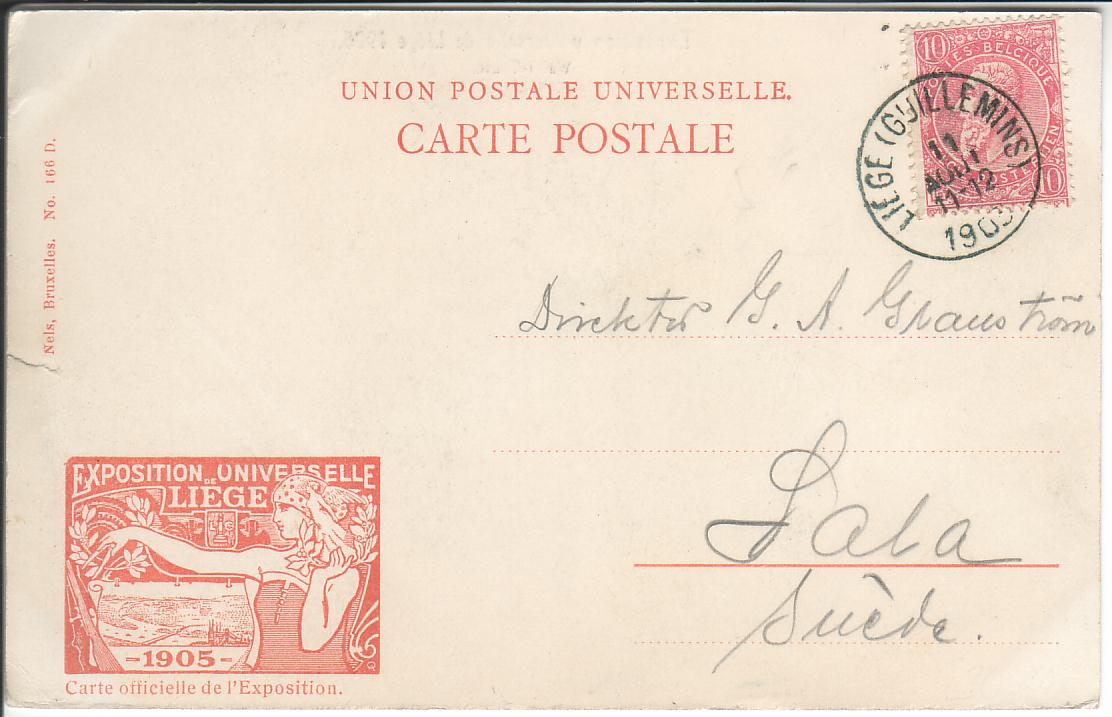 UNION POSTALE UNIVERSELLE.
CARTE POSTALE
10
POSTES BELGIQUE
10
LIEGE (GUILLEMINS)
11
AOUT
11-12
1905
Nels, Bruxelles. No. 166 D.
Direktör G. A. Granström
Sala
Suède.
EXPOSITION DE UNIVERSELLE
LIEGE
-1905-
Carte officielle de l'Exposition.